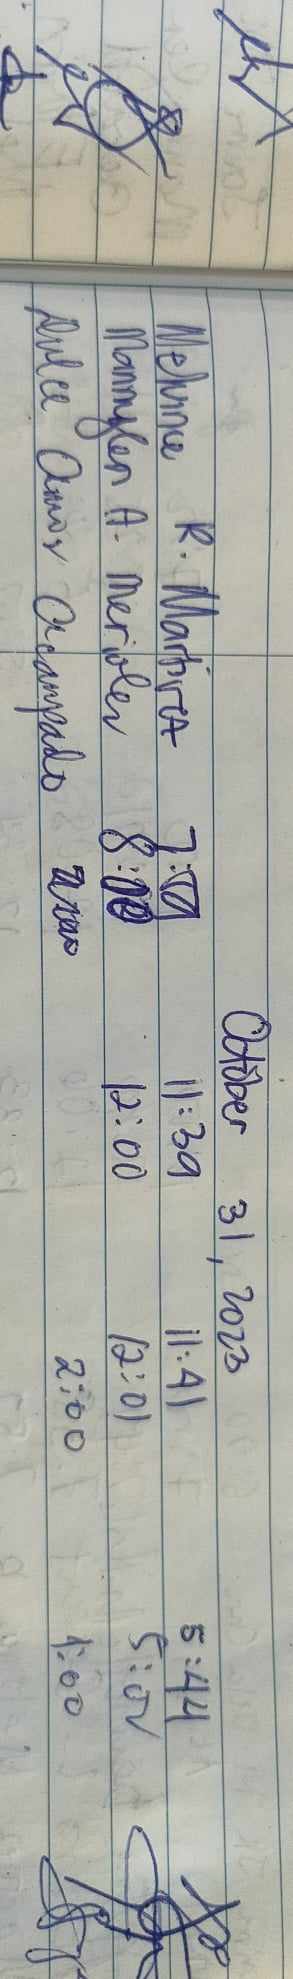 October 31, 2023
Melvina R. Martireta 7:59 11:39 11:41 5:44
Mannylen A. Merioles 8:00 12:00 12:01 5:02
Dulce Amor Ocampado 2:00 4:00